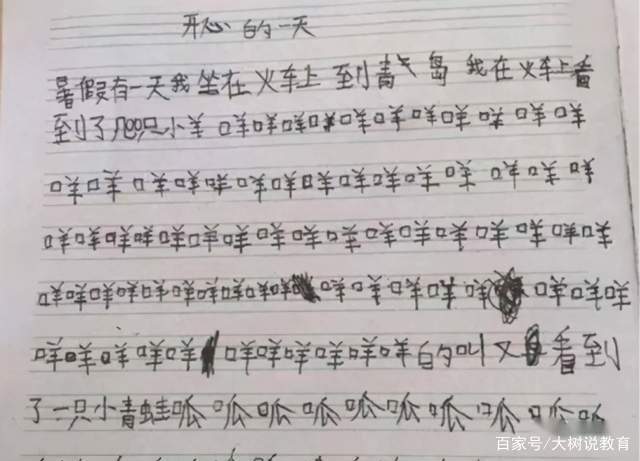 开心的一天
暑假有一天我坐在火车上到青岛我在火车上看
到了几只小羊咩咩咩咩咩咩咩咩咩咩咩
咩咩咩咩咩咩咩咩咩咩咩咩咩咩咩
咩咩咩咩咩咩咩咩咩咩咩咩咩咩咩咩咩
咩咩咩咩咩咩咩咩咩咩咩咩咩咩咩咩咩咩
咩咩咩咩咩咩咩咩咩咩咩的叫又看到
了一只小青蛙呱呱呱呱呱呱呱呱呱呱
百家号/大树说教育